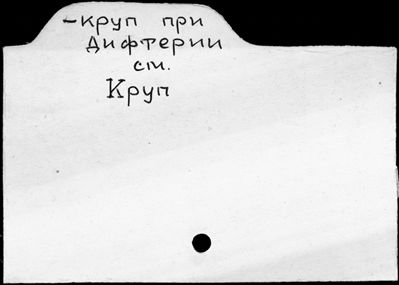 -круп при
Дифтерии
см.
Круп